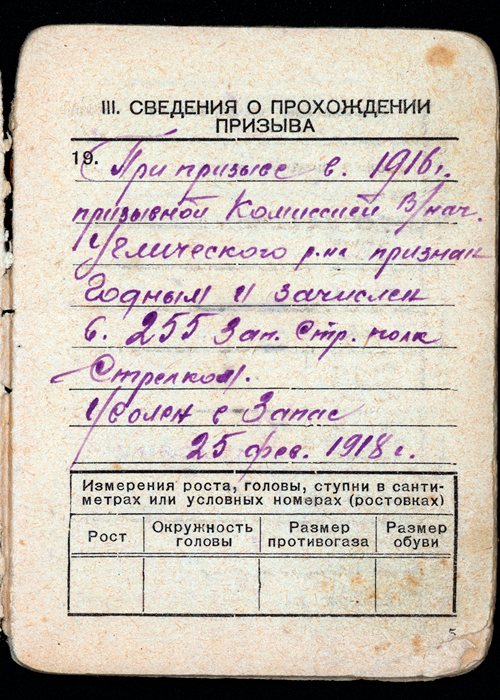 III. СВЕДЕНИЯ О ПРОХОЖДЕНИИ
ПРИЗЫВА
19. При призыве в. 1916 г.
призывной Комиссией В/нач.
Угличского р-на признан
Годным и зачислен
в. 255 Зап. Стр. полк
Стрелком.
Уволен в Запас
25 фев. 1918 г.
Измерения роста, головы, ступни в санти-
метрах или условных номерах (ростовках)
Рост Окружность головы Размер противогаза Размер обуви
5